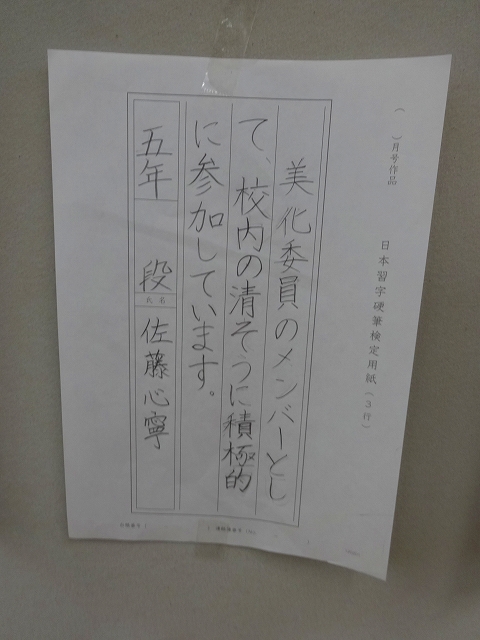 （　　）月号作品
日本習字硬筆検定用紙（3行）
美化委員のメンバーとし
て、校内の清そうに積極的
に参加しています。
五年　段　氏名　佐藤心寧